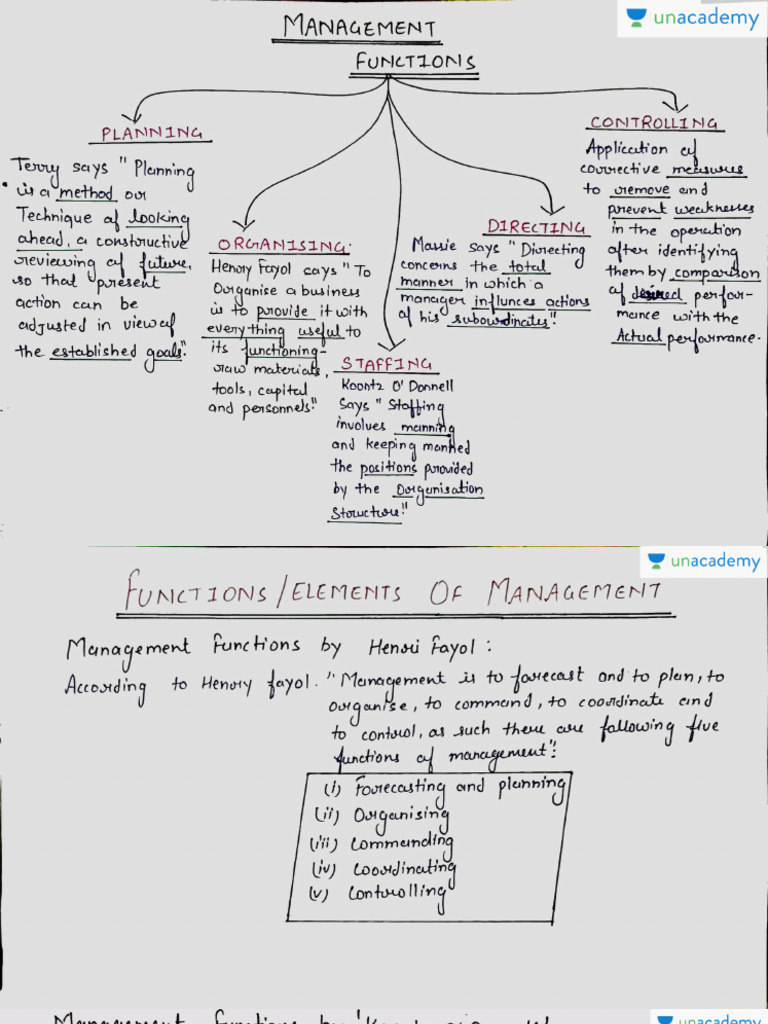 MANAGEMENT
unacademy
FUNCTIONS
PLANNING
Terry says " Planning
is a method or
Technique of looking
ahead, a constructive
reviewing of future,
so that present
action can be
adjusted in view of
the established goals".
ORGANISING
Henry Fayol says " To
Organise a business
is to provide it with
everything useful to
its functioning-
raw materials,
tools, capital
and personnels"
STAFFING
Koontz O' Donnell
Says " Staffing
involves manning
and keeping manned
the positions provided
by the Organisation
Structure"
DIRECTING
Massie says " Directing
concerns the total
manner in which a
manager influnces actions
of his subordinates".
CONTROLLING
Application of
corrective measures
to remove and
prevent weaknesses
in the operation
after identifying
them by comparison
of desired perfor-
mance with the
Actual performance.
unacademy
FUNCTIONS/ELEMENTS OF MANAGEMENT
Management Functions by Henri Fayol :
According to Henry fayol. "Management is to forecast and to plan, to
organise, to command, to coordinate and
to control, as such there are following five
functions of management":
(i) Forecasting and planning
(ii) Organising
(iii) Commanding
(iv) Coordinating
(v) Controlling
Management functions by
unacademy